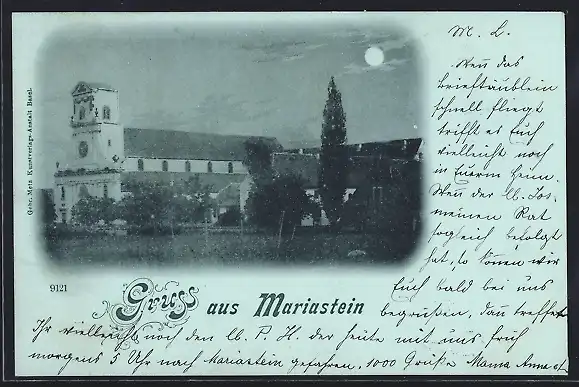 Gebr. Metz Kunstverlags-Anstalt Basel.
M. L.
Wen das
brieftäublein
schnell fliegt
trifft es Euch
vielleicht noch
in Euerm heim.
Wen der lb. Jos.
meinen Rat
sogleich befolgt
hat, so könen wir
Euch bald bei uns
begrüßen, dan treffet
9121
Gruss aus Mariastein
Ihr vielleicht noch den lb. P. H. der heute mit uns früh
morgens 5 Uhr nach Mariastein gefahren. 1000 Grüße Mama Anna